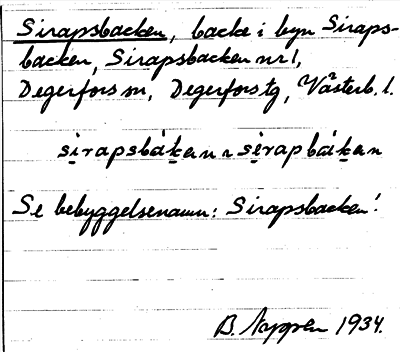 Sirapsbacken, backe i byn Siraps-
backen, Sirapsbacken nr 1,
Degerfors sn, Degerfors tg, Västerb. l.
sirapsbákan ~ sèrapbákan
Se bebyggelsenamn: Sirapsbacken!
B. 1934.